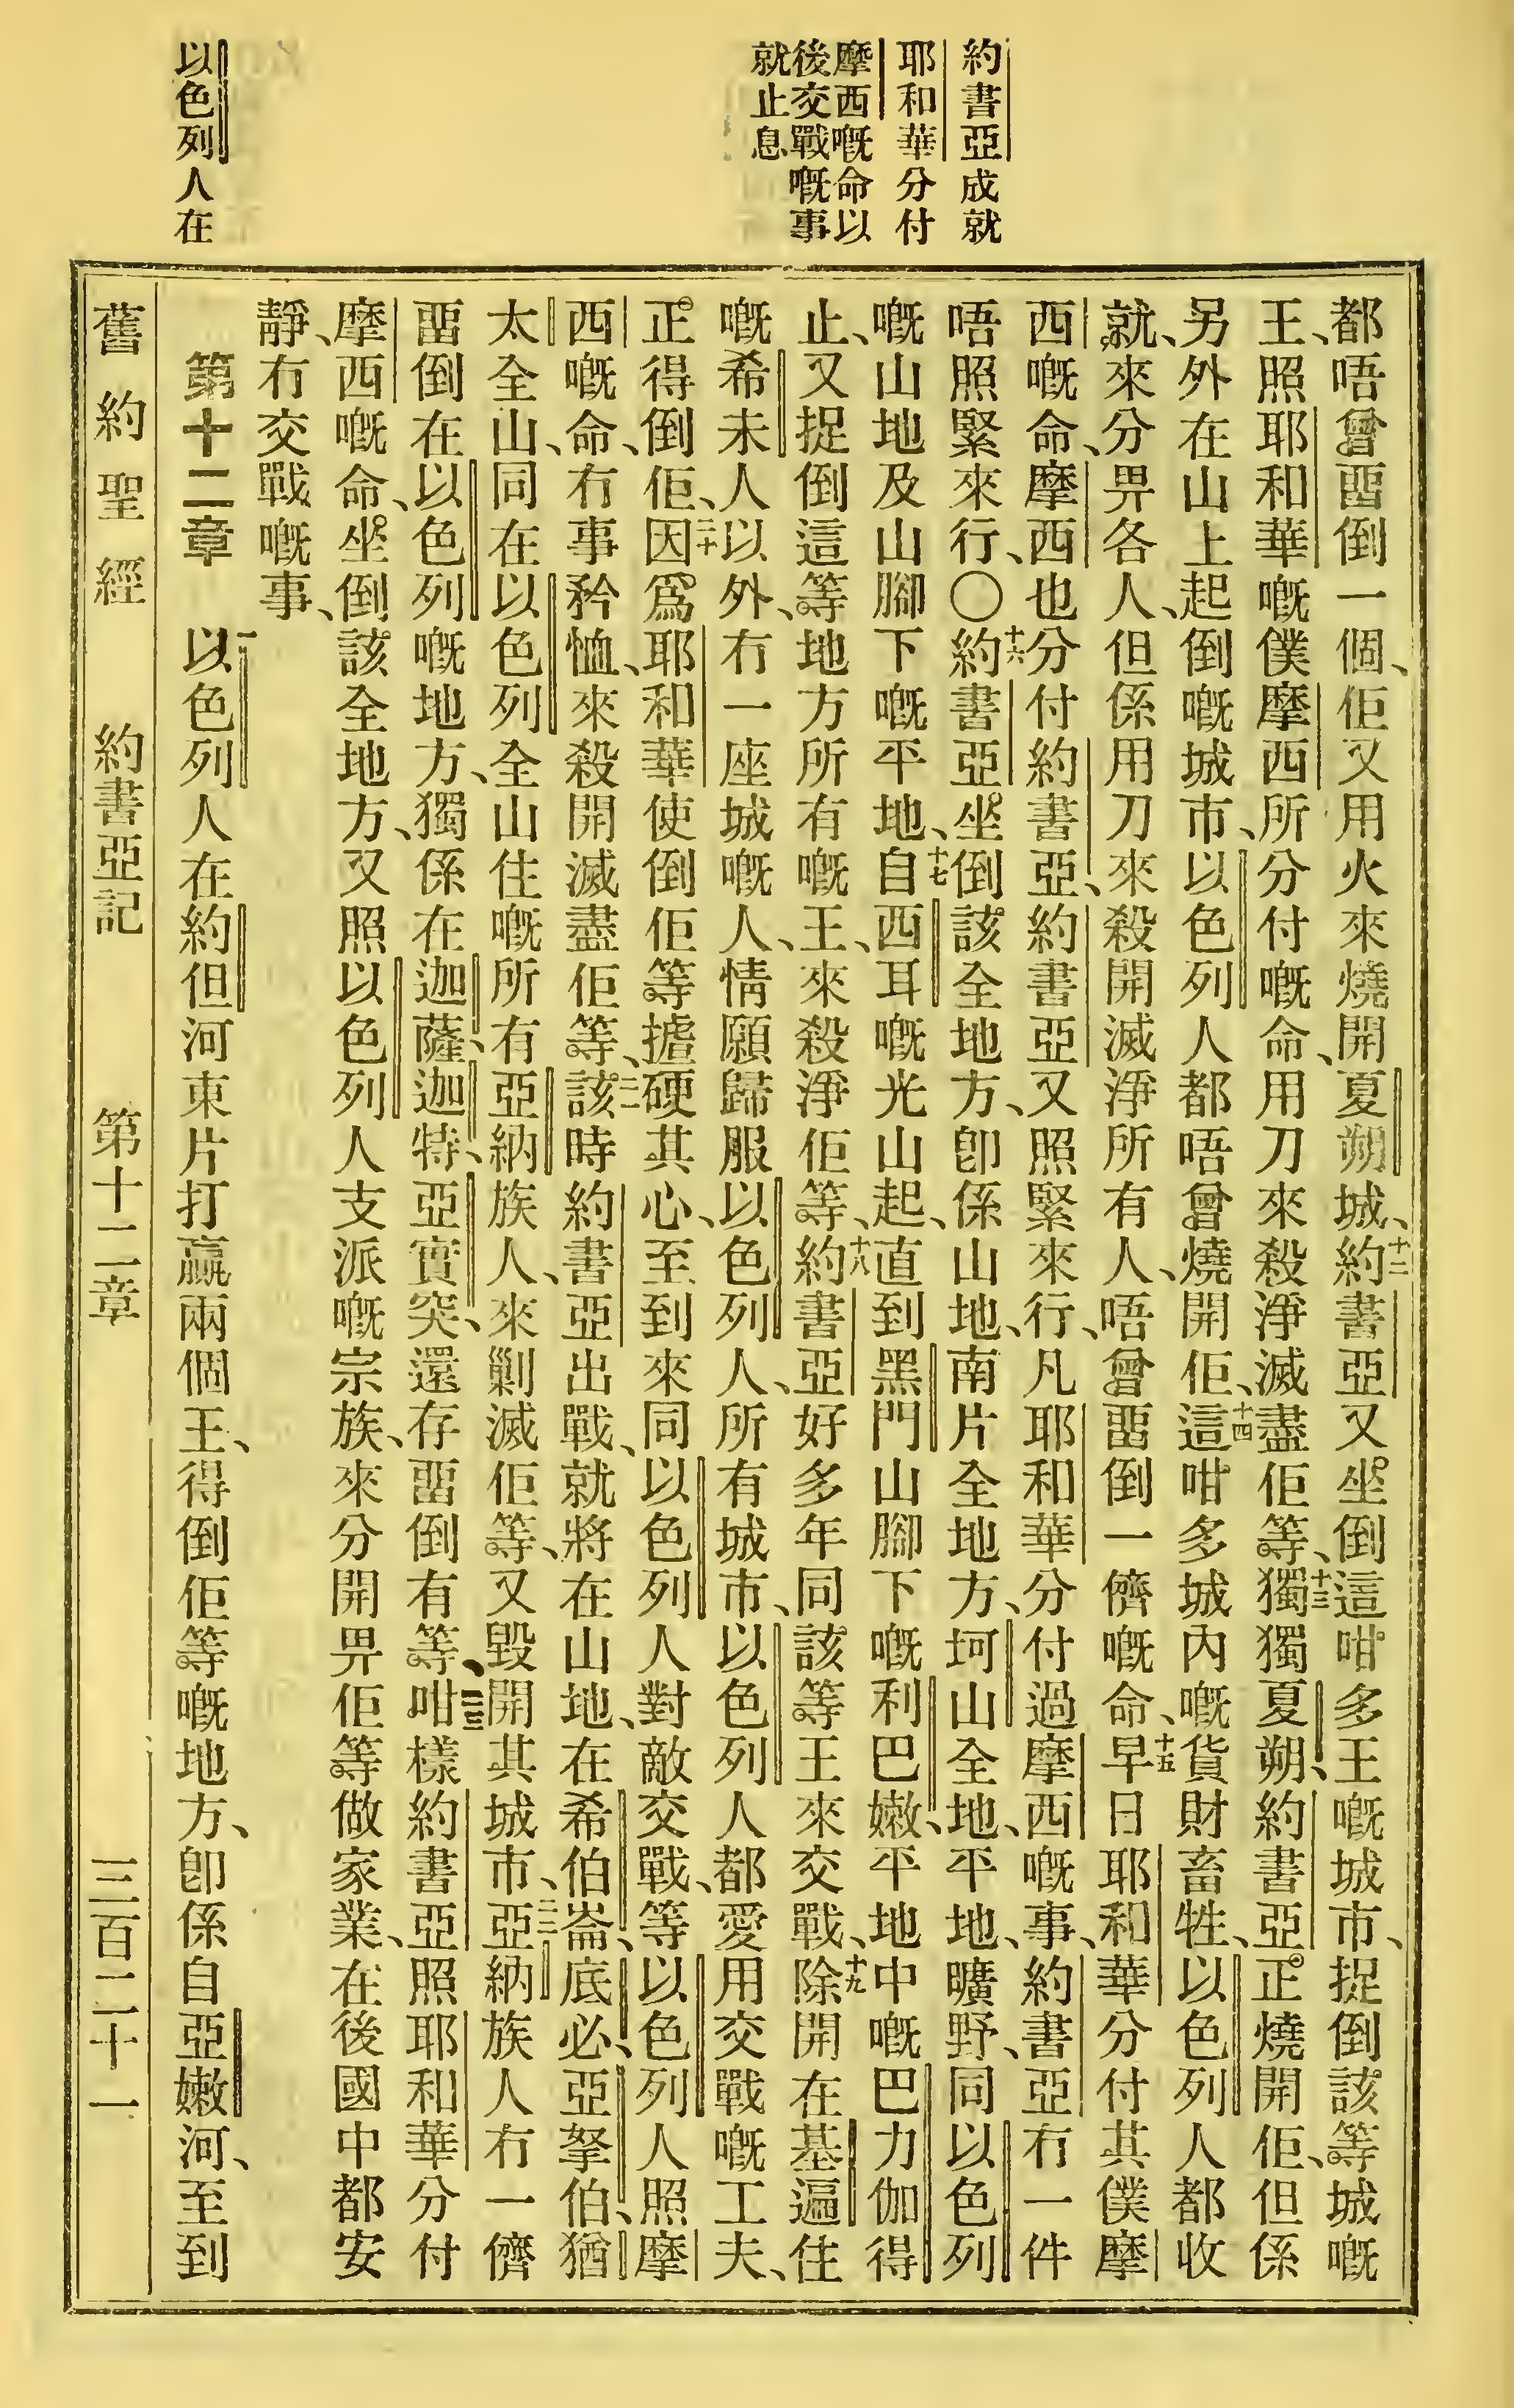 約書亞成就
耶和華分付
摩西嘅命以
後交戰嘅事
就止息
以色列人在
都唔曾畱倒一個、佢又用火來燒開夏朔城、十二約書亞又坐倒這咁多王嘅城市、捉倒該等城嘅
王、照耶和華嘅僕摩西所分付嘅命、用刀來殺淨滅盡佢等、十三獨獨夏朔、約書亞正燒開佢、但係
另外在山上起倒嘅城市、以色列人都唔曾燒開佢、十四這咁多城內嘅貨財畜牲、以色列人都收
就、來分畀各人、但係用刀來殺開滅淨所有人、唔曾畱倒一儕嘅命、十五早日耶和華分付其僕摩
西嘅命、摩西也分付約書亞、約書亞又照緊來行、凡耶和華分付過摩西嘅事、約書亞冇一件
唔照緊來行、〇十六約書亞坐倒該全地方、卽係山地、南片全地方、坷山全地、平地、曠野、同以色列
嘅山地及山腳下嘅平地、十七自西耳嘅光山起、直到黑門山腳下嘅利巴嫩、平地中嘅巴力伽得
止、又捉倒這等地方所有嘅王、來殺淨佢等、十八約書亞好多年同該等王來交戰、十九除開在基遍住
嘅希未人以外、冇一座城嘅人、情願歸服以色列人、所有城市、以色列人都愛用交戰嘅工夫、
正得倒佢、二十因爲耶和華使倒佢等㨿硬其心、至到來同以色列人對敵交戰、等以色列人照摩
西嘅命、冇事矜恤、來殺開滅盡佢等、二一該時約書亞出戰、就將在山地、在希伯崙、底必、亞拏伯、猶
太全山、同在以色列全山住嘅所有亞納族人、來剿滅佢等、又毀開其城市、二二亞納族人冇一儕
畱倒在以色列嘅地方、獨係在迦薩、迦特、亞實突、還存畱倒有等、二三咁樣約書亞照耶和華分付
摩西嘅命、坐倒該全地方、又照以色列人支派嘅宗族、來分開畀佢等做家業、在後國中都安
靜、冇交戰嘅事、
第十二章　一以色列人在約但河東片打贏兩個王、得倒佢等嘅地方、卽係自亞嫩河、至到
舊約聖經　約書亞記　第十二章　三百二十一